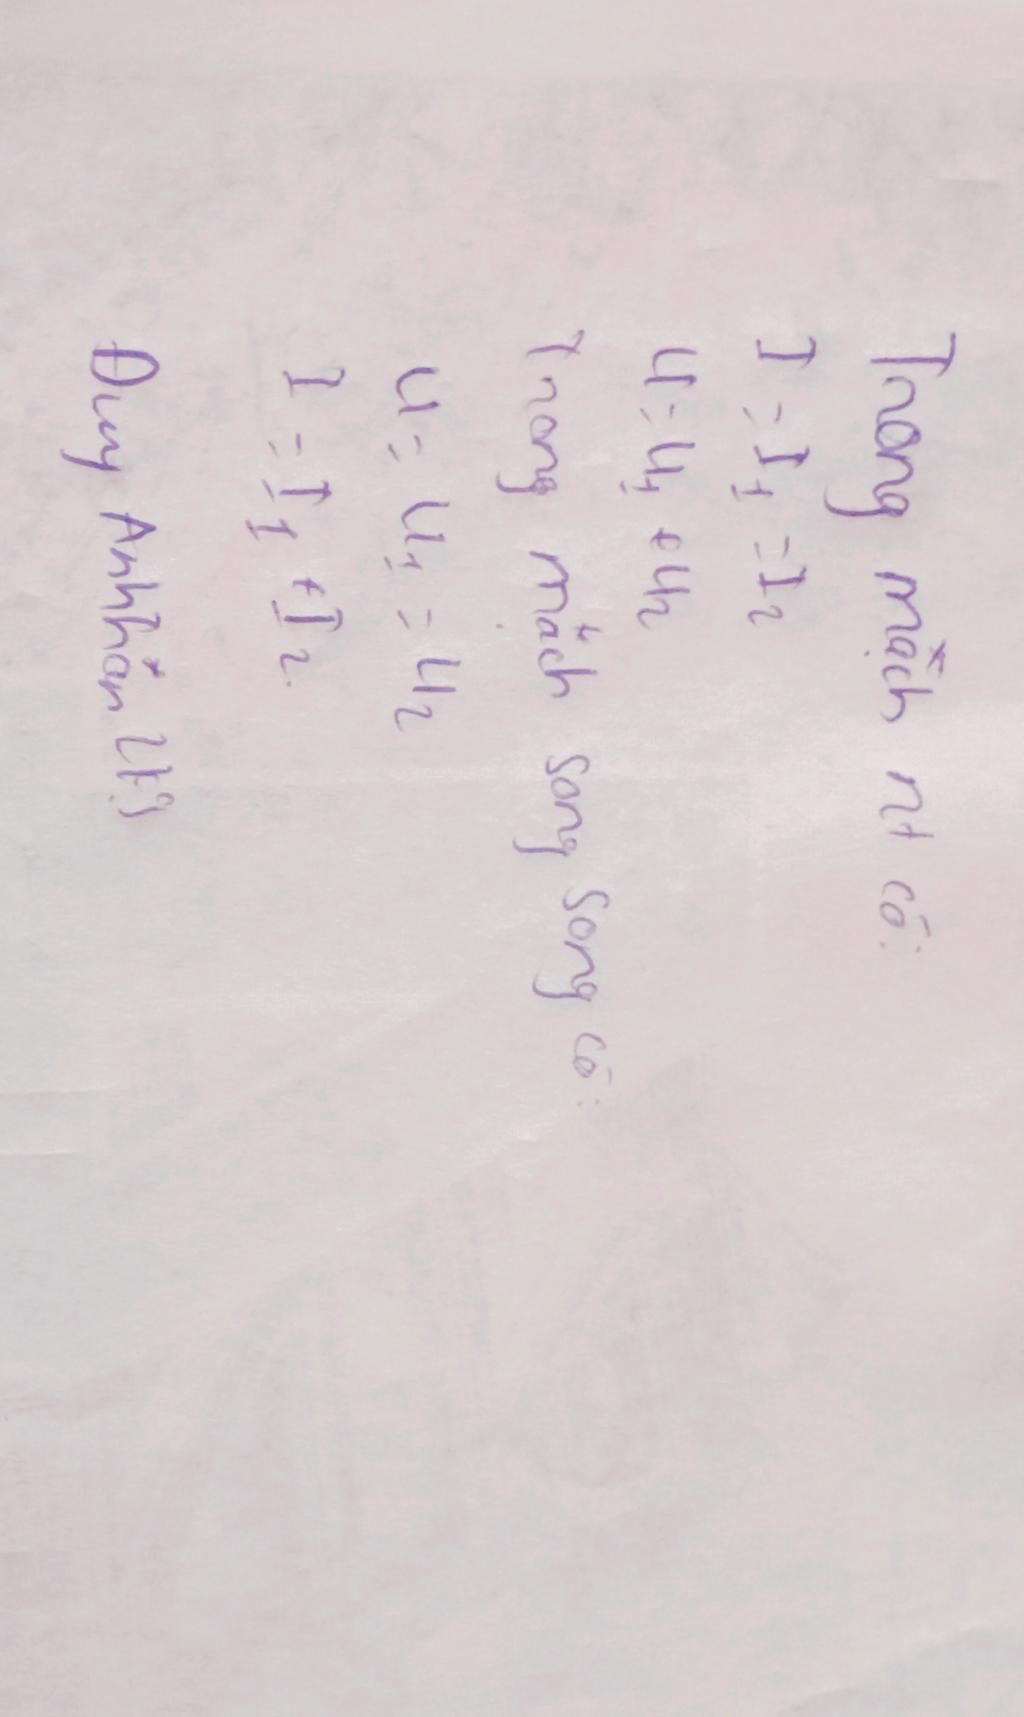 Trong mạch nt có:
I = I1 = I2
U = U1 + U2
Trong mạch song song có:
U = U1 = U2
I = I1 + I2